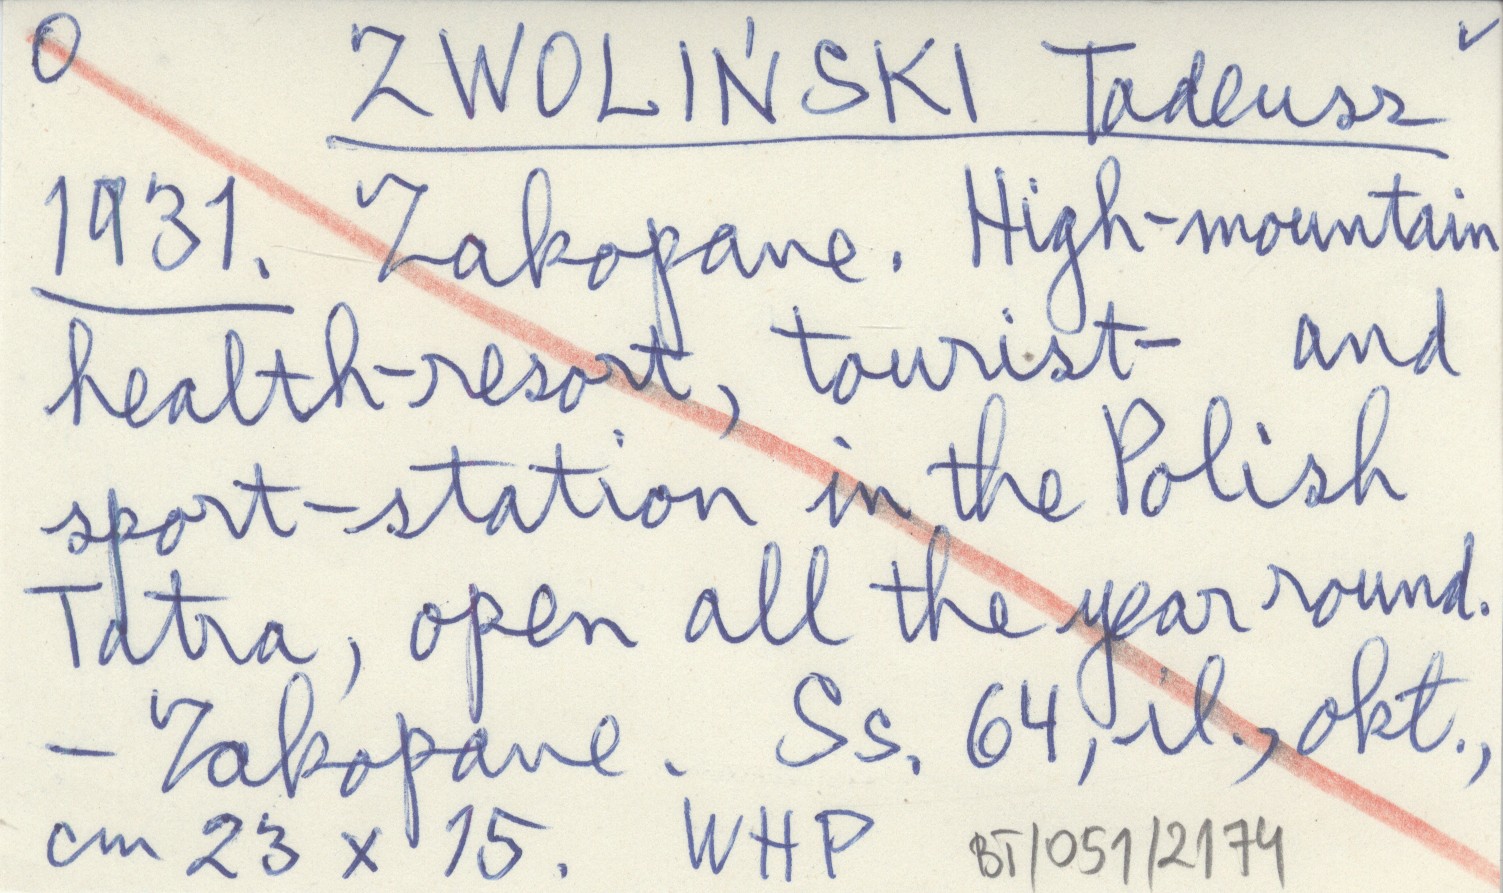 O ZWOLIŃSKI Tadeusz ✓
1931. Zakopane. High-mountain
health-resort, tourist- and
sport-station in the Polish
Tatra, open all the year round.
- Zakopane. Ss. 64, il., okt.,
cm 23 x 15. WHP BT/051/2174